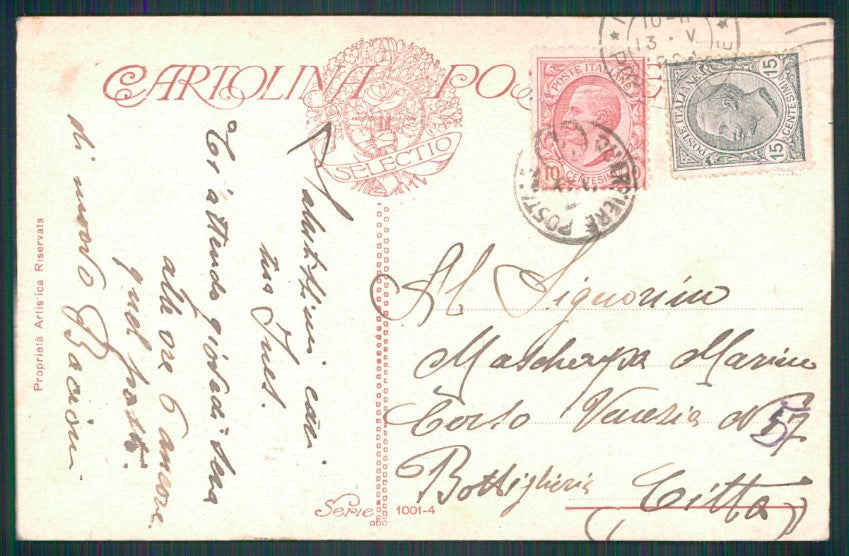 CARTOLINA POS
SELECTIO
POSTE ITALIANE
10 CENTESIMI
POSTE ITALIANE
15 CENTESIMI 15
13 · V
PORTALETTERE POSTA
Proprietà Artistica Riservata
Salutissimi cari
tua Ines.
Ti attendo giovedì sera
alle ore 6 ancora
quel posto
di nuovo Bacioni
Al Signorino
Mascherpa Marino
Corso Venezia N 57
Bottiglieria (Città)
Serie 1001-4